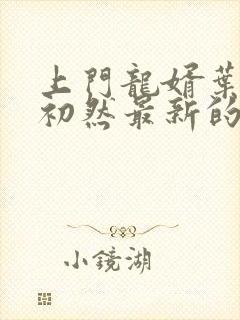 上門龍婿葉
初然最新的
小鏡湖